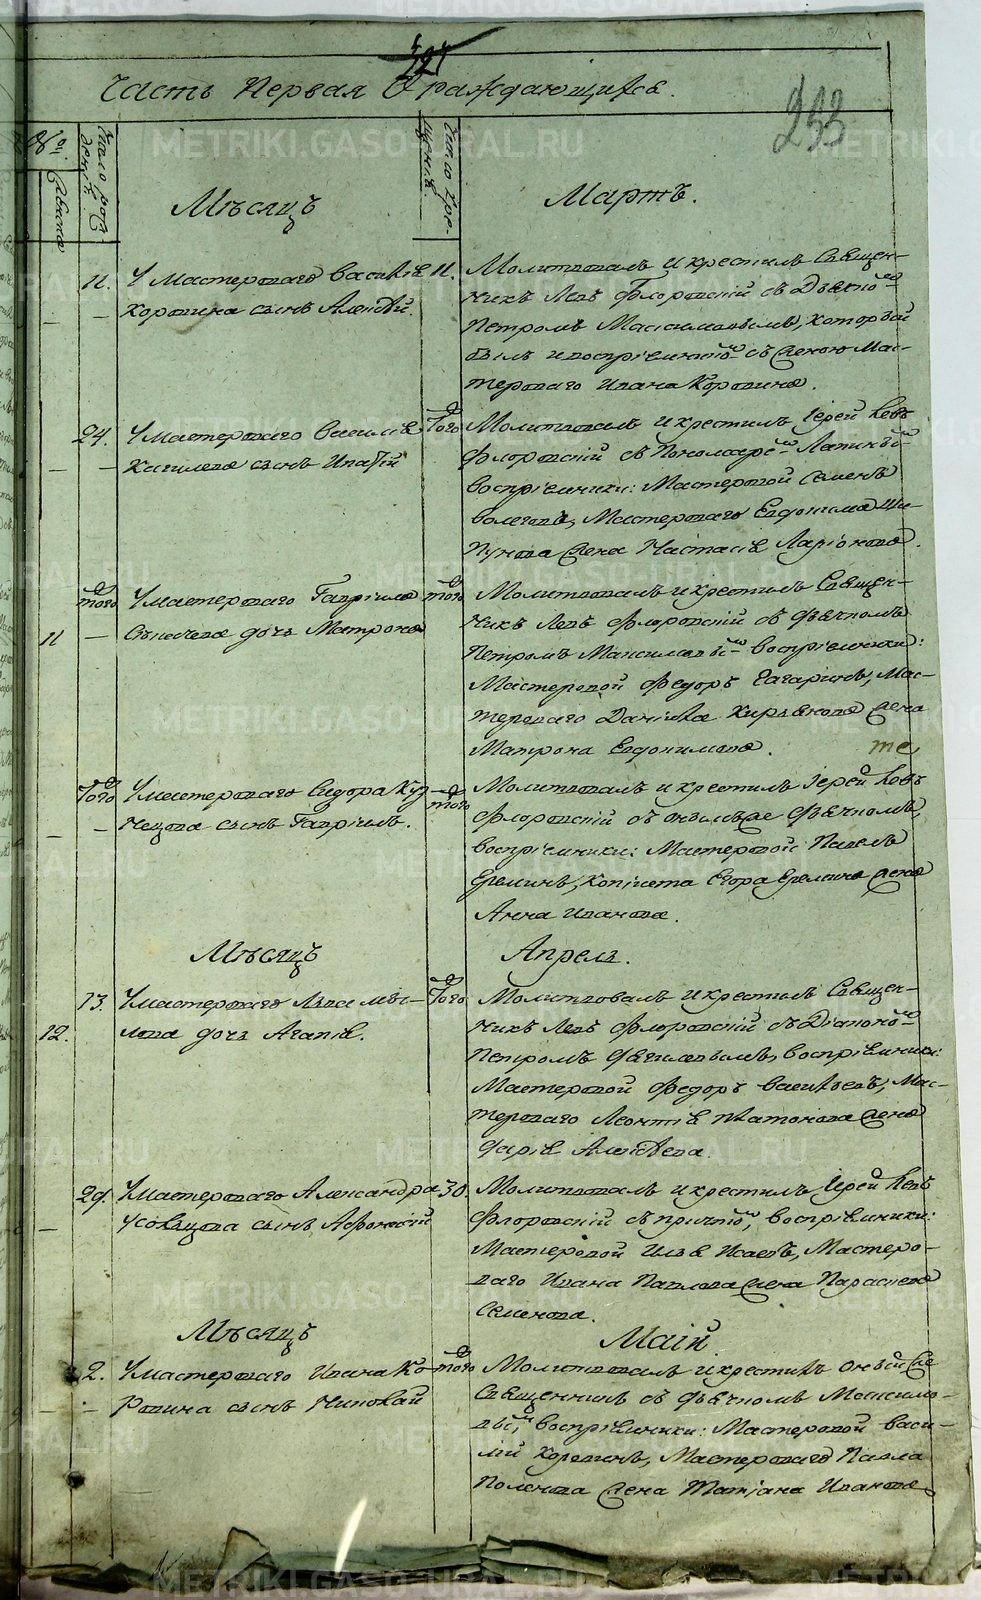 Часть Первая О раждающихсѧ.
233
№
Число рожденiѧ.
Число крещенiѧ.
Женска
Мѣсяцъ
Мартъ.
11. У Мастероваго Василiя 11.
Коровина сынъ Алексѣй.
Молитвовалъ и крестилъ Священ-
никъ Левъ Флоровскiй съ Дьякономъ
Петромъ Максимовымъ, который
былъ и воспрiемникомъ съ женою Мас-
тероваго Ивана Коровина.
24. У Мастероваго Василiя Того
сынъ Ипатiй
Молитвовалъ и крестилъ Iерей Левъ
Флоровскiй съ Пономаремъ Лапинымъ
воспрiемники: Мастеровой Семенъ
Мастероваго Евдокима Ши-
пунова жена Настасiя Ларiонова.
того У Мастероваго Гаврiила того
11 дочь Матрона
Молитвовалъ и крестилъ Священ-
никъ Левъ Флоровскiй съ дьячкомъ
Петромъ Максимовымъ воспрiемники:
Мастеровой Федоръ Гагаринъ, Мас-
тероваго Данила Кирьякова жена
Матрона Евдокимова.
Того У Мастероваго Сидора Куз- того
нецова сынъ Гаврiилъ.
Молитвовалъ и крестилъ Iерей Левъ
Флоровскiй съ онымъ же дьячкомъ,
воспрiемники: Мастеровой Павелъ
Ереминъ, Копiиста Егора Еремина жена
Анна Иванова.
Мѣсяцъ
Апрель.
13. У Мастероваго Льва Мы- Того
12. лова дочь Агапiя.
Молитвовалъ и крестилъ Священ-
никъ Левъ Флоровскiй съ Дiакономъ
Петромъ воспрiемники:
Мастеровой Федоръ Васильевъ, Мас-
тероваго Леонтiя Платонова жена
Дарiя Алексѣева.
29. У Мастероваго Александра 30.
Усольцова сынъ Афонасiй
Молитвовалъ и крестилъ Iерей Левъ
Флоровскiй съ причтомъ, воспрiемники:
Мастеровой Илья Исаевъ, Мастеро-
ваго Ивана Павлова жена Параскева
Семенова.
Мѣсяцъ
Маiй.
2. У Мастероваго Ивана Ко- того
ровина сынъ Николай
Молитвовалъ и крестилъ оный же
Священникъ съ дьячкомъ Максимо-
вымъ, воспрiемники: Мастеровой Васи-
лiй Коровинъ, Мастероваго Павла
Поленова жена Татiана Иванова.
METRIKI.GASO-URAL.RU